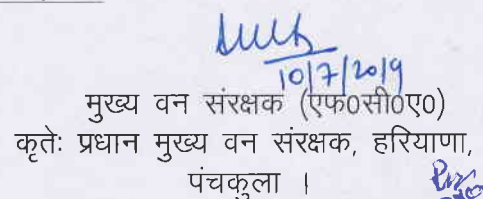 10/7/2019
मुख्य वन संरक्षक (एफ0सी0ए0)
कृतेः प्रधान मुख्य वन संरक्षक, हरियाणा,
पंचकुला ।